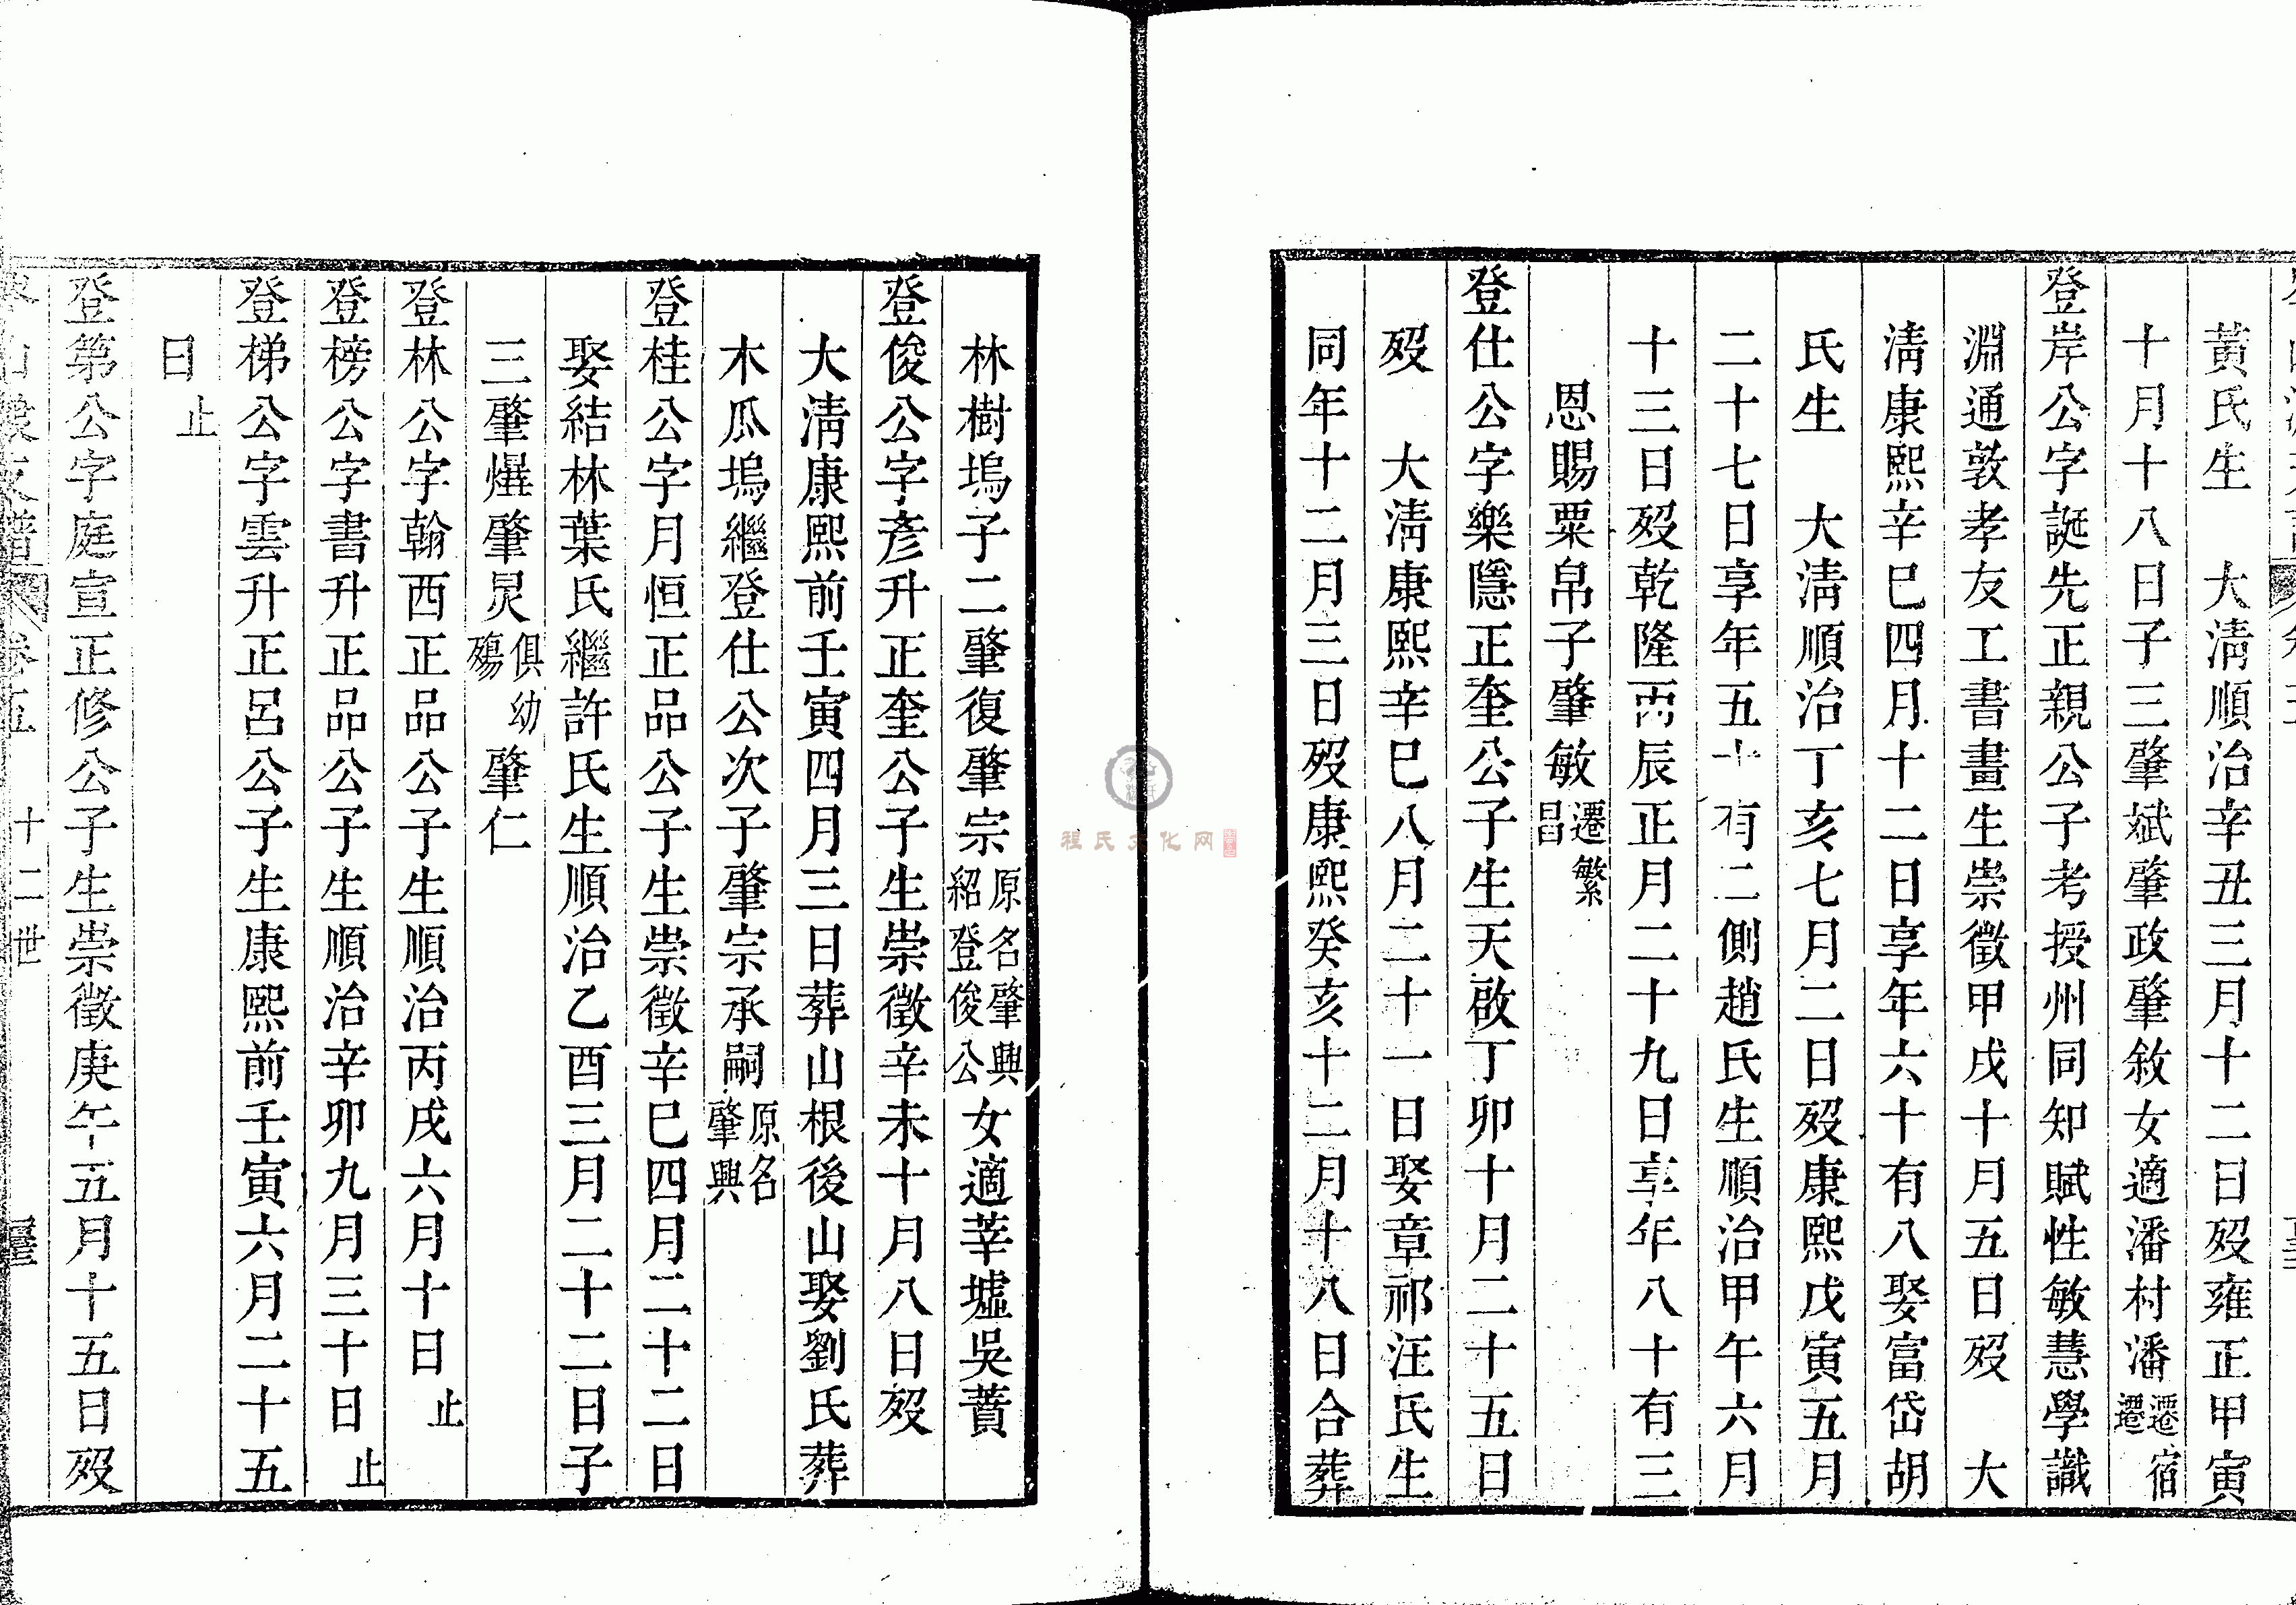 黃氏生　大清順治辛丑三月十二日歿雍正甲寅
十月十八日子三肇斌肇政肇敘女適潘村潘遷宿遷
登岸公字誕先正親公子考授州同知賦性敏慧學識
淵通敦孝友工書畫生崇徵甲戌十月五日歿　大
清康熙辛巳四月十二日享年六十有八娶富岱胡
氏生　大清順治丁亥七月二日歿康熙戊寅五月
二十七日享年五十有二側趙氏生順治甲午六月
十三日歿乾隆丙辰正月二十九日享年八十有三
恩賜粟帛子肇敏遷繁昌
登仕公字樂隱正奎公子生天啟丁卯十月二十五日
歿　大清康熙辛巳八月二十一日娶章祁汪氏生
同年十二月三日歿康熙癸亥十二月十八日合葬
林樹塢子二肇復肇宗原名肇興紹登俊公女適莘墟吳蕡
登俊公字彥升正奎公子生崇徵辛未十月八日歿
大清康熙前壬寅四月三日葬山根後山娶劉氏葬
木瓜塢繼登仕公次子肇宗承嗣原名肇興
登桂公字月恒正品公子生崇徵辛巳四月二十二日
娶結林葉氏繼許氏生順治乙酉三月二十二日子
三肇爆肇炅俱幼殤肇仁
登林公字翰西正品公子生順治丙戌六月十日止
登榜公字書升正品公子生順治辛卯九月三十日止
登梯公字雲升正呂公子生康熙前壬寅六月二十五
日止
登第公字庭宣正修公子生崇徵庚午五月十五日歿
十二世
程氏文化网